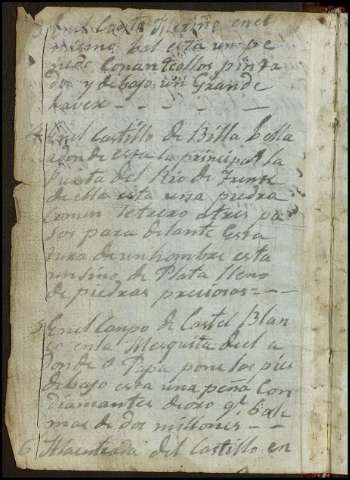 3 En el Canto Merino en el
mismo bal esta un pe
nedo con anteollos pinta
dos y debajo un Grande
haver - - - - -
4 En el Castillo de Billa bella
adonde esta la principal la
puerta del Rio de frente
de ella esta una piedra
con un letrero a tres pa
sos para delante esta
tura de un hombre esta
un sino de Plata lleno
de piedras preciosas - -
5 En el Canpo de Castel Blan
co en la Mesquita del a
donde o Papa pone los pies
debajo esta una peña con
diamantes de oro qe bale
mas de dos millones - -
6 A la entrada del Castillo en